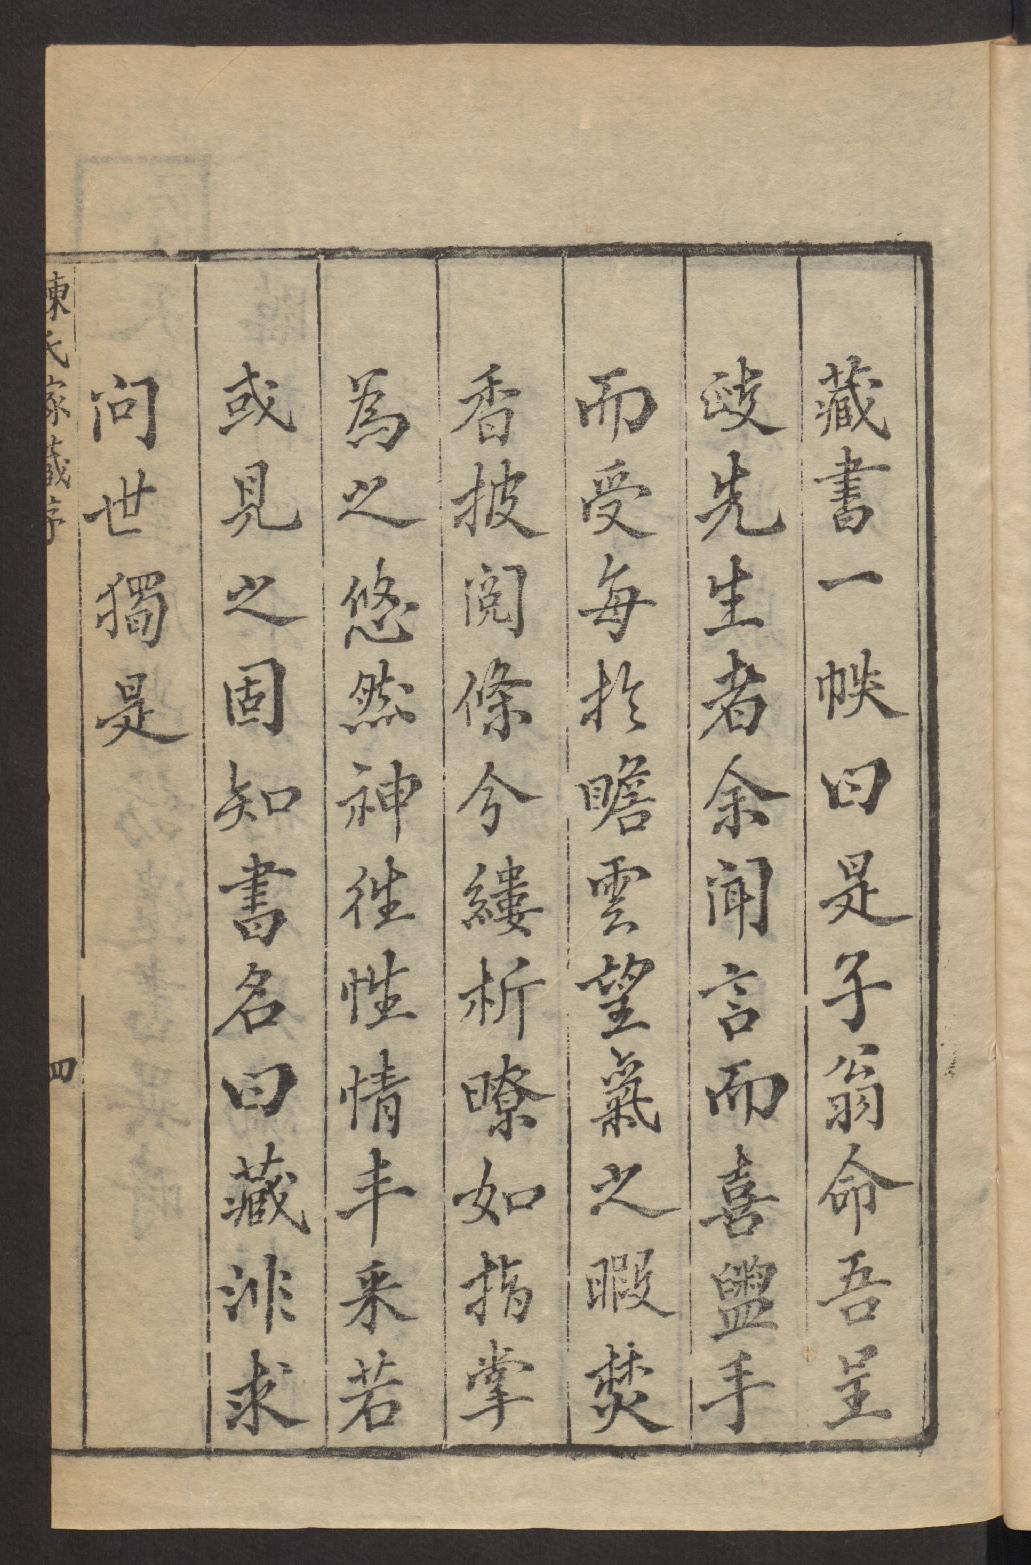 藏書一帙曰是子翁命吾呈
歧先生者余聞言而喜盥手
而受每於瞻雲望氣之暇焚
香披閱條分縷析瞭如指掌
為之悠然神往性情丰采若
或見之固知書名曰藏非求
問世獨是
陳氏家藏序
四